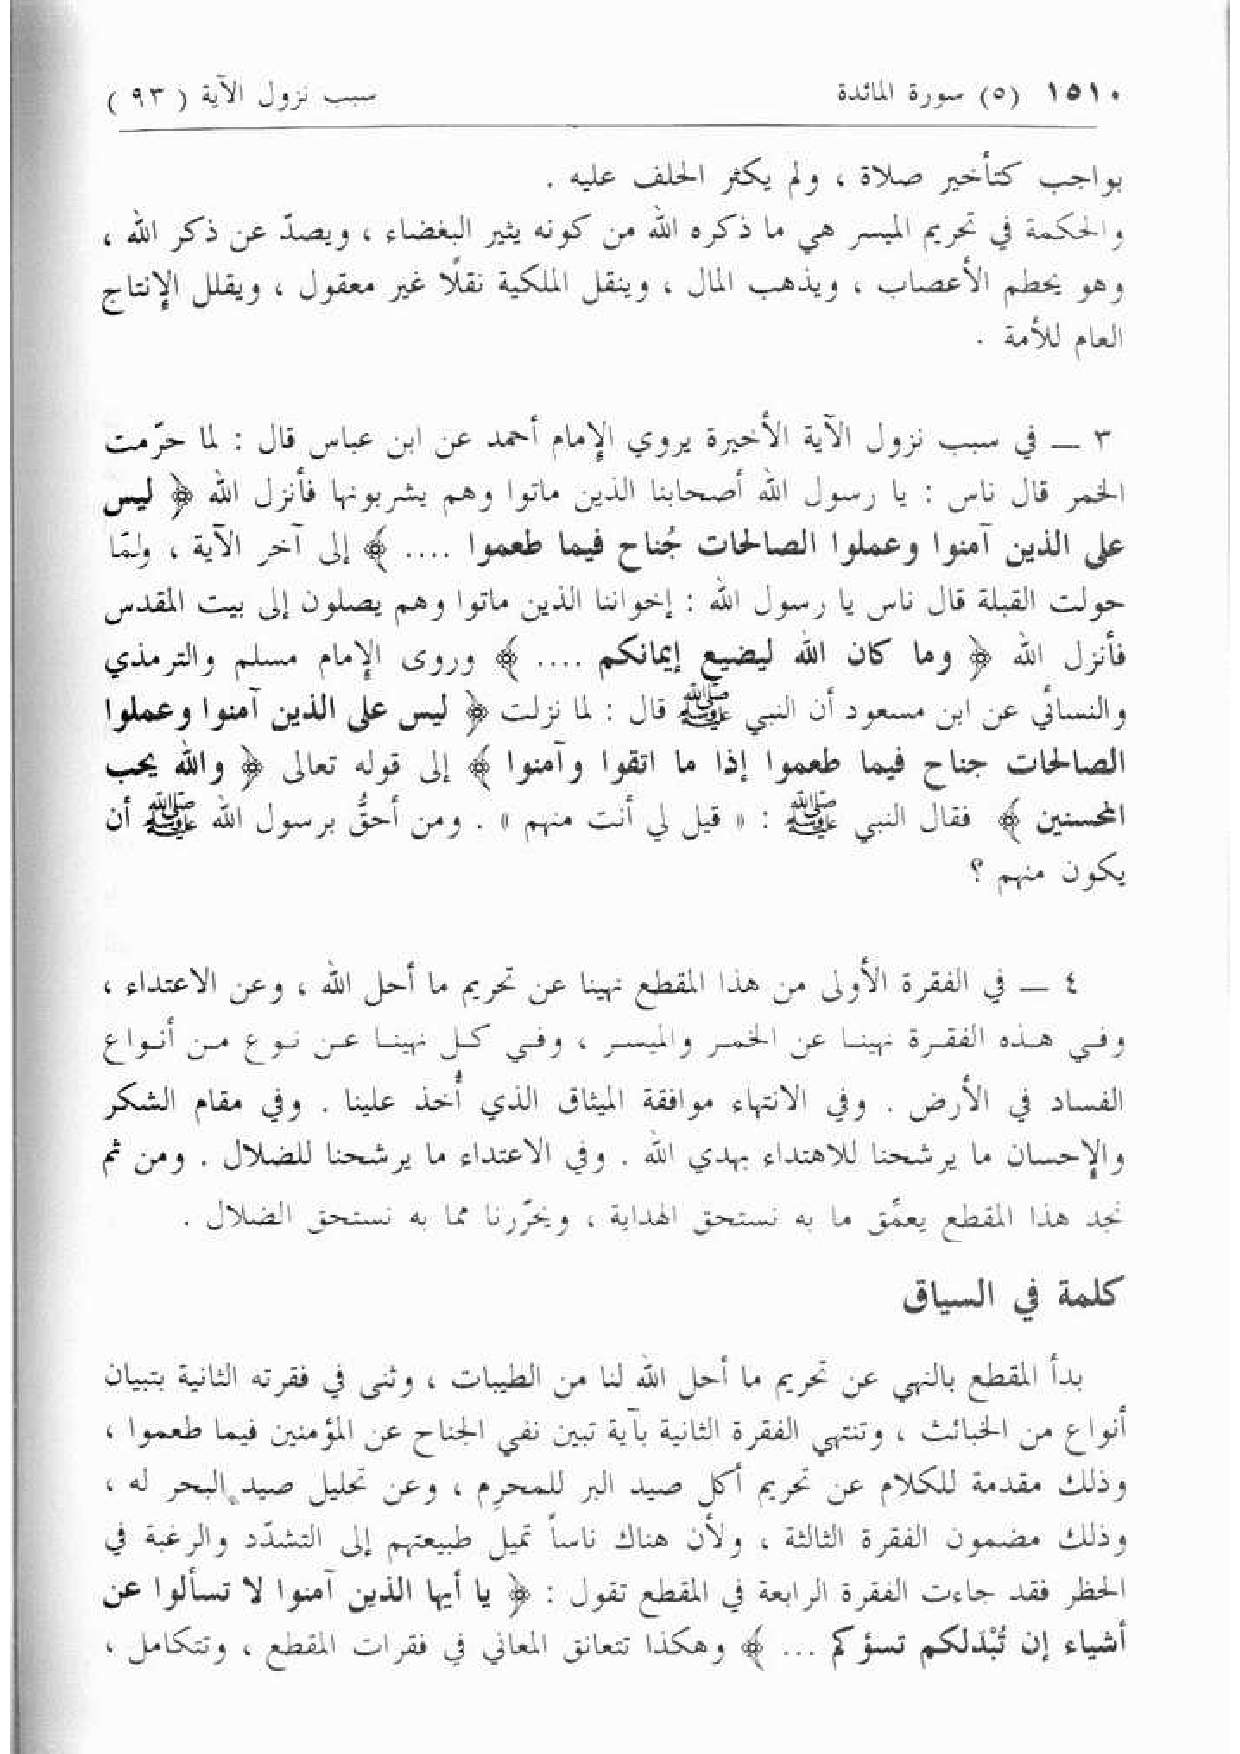 ١٥١٠ (٥) سورة المائدة سبب نزول الآية ( ٩٣ )
بواجب كتأخير صلاة ، ولم يكثر الحلف عليه .
والحكمة في تحريم الميسر هي ما ذكره الله من كونه يثير البغضاء ، ويصدّ عن ذكر الله ،
وهو يحطم الأعصاب ، ويذهب المال ، وينقل الملكية نقلًا غير معقول ، ويقلل الإنتاج
العام للأمة .
٣ ــ في سبب نزول الآية الأخيرة يروي الإمام أحمد عن ابن عباس قال : لما حرّمت
الخمر قال ناس : يا رسول الله أصحابنا الذين ماتوا وهم يشربونها فأنزل الله ﴿ ليس
على الذين آمنوا وعملوا الصالحات جُناح فيما طعموا .... ﴾ إلى آخر الآية ، ولمّا
حولت القبلة قال ناس يا رسول الله : إخواننا الذين ماتوا وهم يصلون إلى بيت المقدس
فأنزل الله ﴿ وما كان الله ليضيع إيمانكم .... ﴾ وروى الإمام مسلم والترمذي
والنسائي عن ابن مسعود أن النبي ﷺ قال : لما نزلت ﴿ ليس على الذين آمنوا وعملوا
الصالحات جناح فيما طعموا إذا ما اتقوا وآمنوا ﴾ إلى قوله تعالى ﴿ والله يحب
المحسنين ﴾ فقال النبي ﷺ : « قيل لي أنت منهم » . ومن أحقُّ برسول الله ﷺ أن
يكون منهم ؟
٤ ــ في الفقرة الأولى من هذا المقطع نهينا عن تحريم ما أحل الله ، وعن الاعتداء ،
وفي هذه الفقرة نهينا عن الخمر والميسر ، وفي كل نهينا عن نوع من أنواع
الفساد في الأرض . وفي الانتهاء موافقة الميثاق الذي أُخذ علينا . وفي مقام الشكر
والإحسان ما يرشحنا للاهتداء بهدي الله . وفي الاعتداء ما يرشحنا للضلال . ومن ثم
نجد هذا المقطع يعمِّق ما به نستحق الهداية ، ويحرّرنا مما به نستحق الضلال .
كلمة في السياق
بدأ المقطع بالنهي عن تحريم ما أحل الله لنا من الطيبات ، وثنى في فقرته الثانية بتبيان
أنواع من الخبائث ، وتنتهي الفقرة الثانية بآية تبين نفي الجناح عن المؤمنين فيما طعموا ،
وذلك مقدمة للكلام عن تحريم أكل صيد البر للمحرِم ، وعن تحليل صيد البحر له ،
وذلك مضمون الفقرة الثالثة ، ولأن هناك ناساً تميل طبيعتهم إلى التشدّد والرغبة في
الحظر فقد جاءت الفقرة الرابعة في المقطع تقول : ﴿ يا أيها الذين آمنوا لا تسألوا عن
أشياء إن تُبْدَلكم تسؤكم ... ﴾ وهكذا تتعانق المعاني في فقرات المقطع ، وتتكامل ،